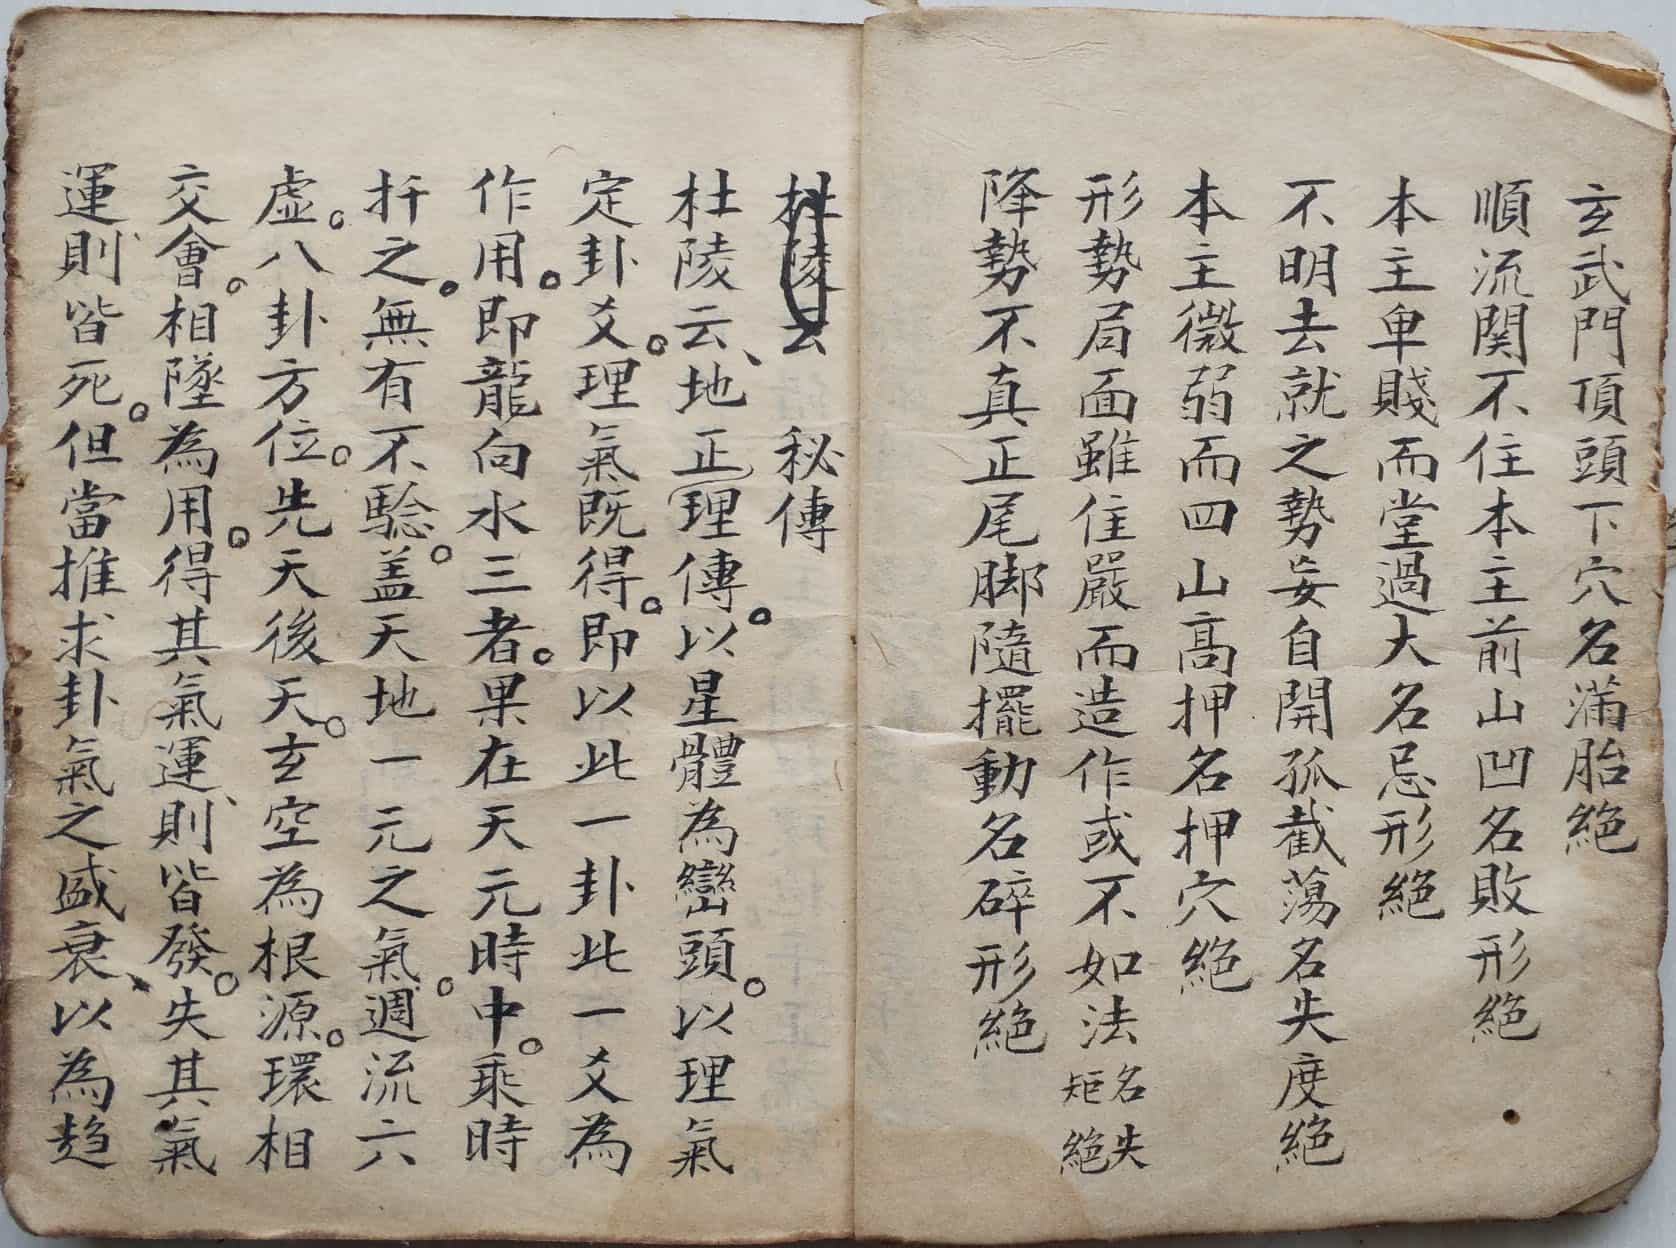 玄武門頂頭下穴名滿胎絕
順流関不住本主前山凹名敗形絕
本主卑賤而堂過大名忌形絕
不明去就之勢妄自開孤截蕩名失度絕
本主微弱而四山高押名押穴絕
形勢局面雖住嚴而造作或不如法名失矩絕
降勢不真正尾脚隨擺動名碎形絕
杜陵云 秘傳
杜陵云、地正理傳。以星體為巒頭。以理氣
定卦爻。理氣既得。即以此一卦此一爻為
作用。即龍向水三者。果在天元時中。乘時
扦之。無有不騐。盖天地一元之氣。週流六
虛。八卦方位。先天後天。玄空為根源。環相
交會。相墜為用。得其氣運、則皆發。失其氣
運、則皆死。但當推求卦氣之盛衰、以為趋